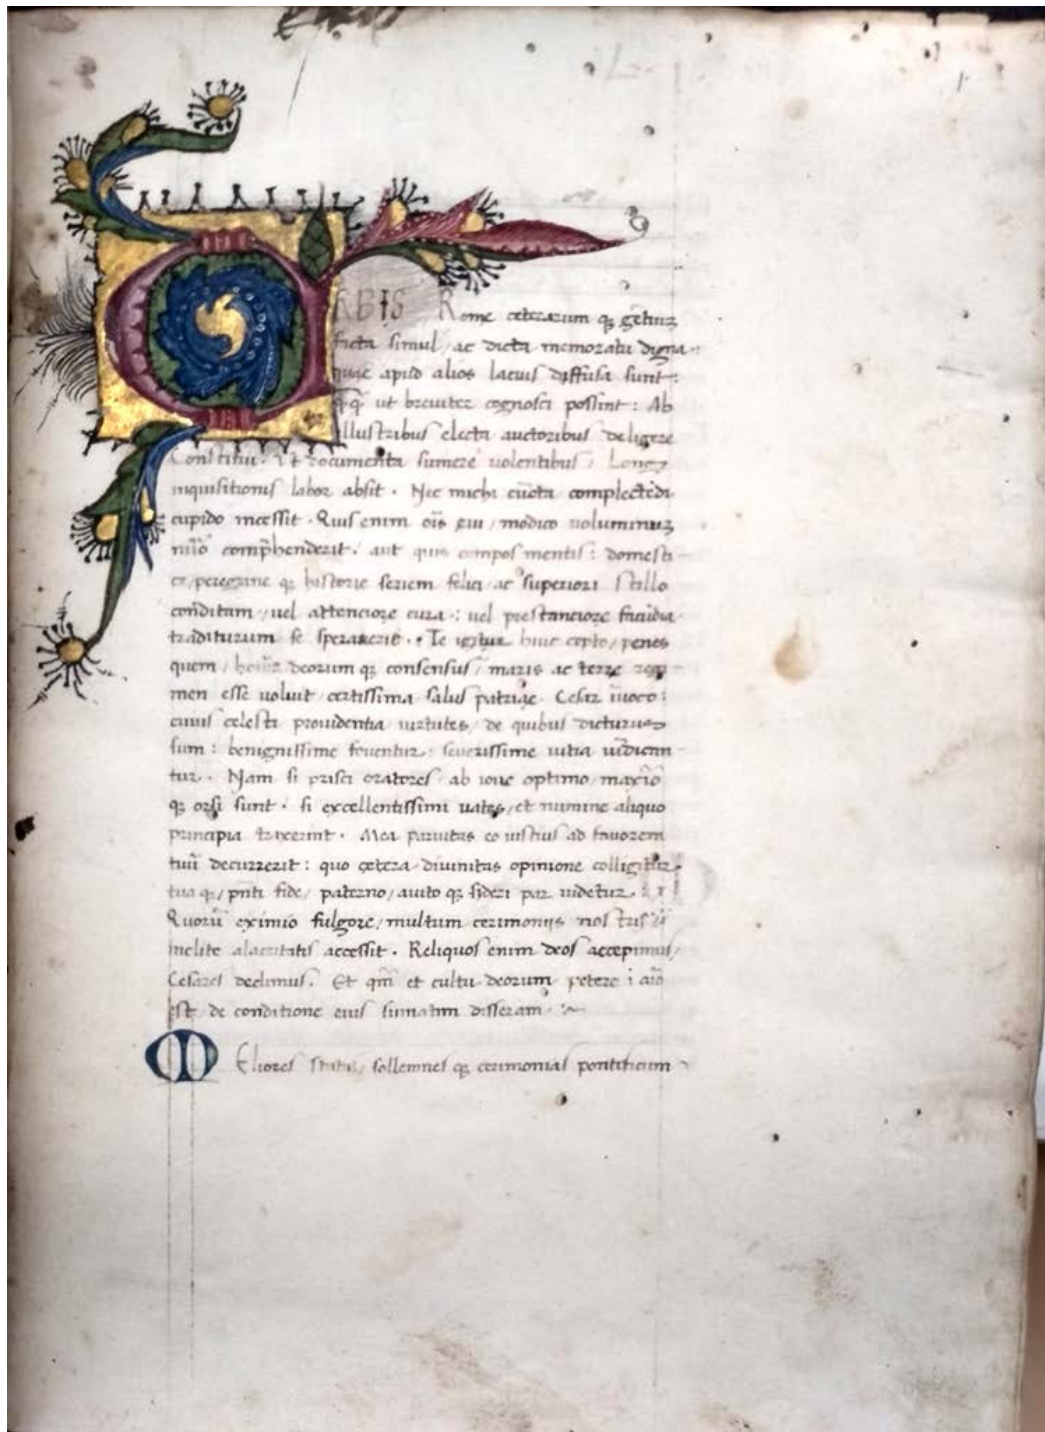 URBIS Rome ceterarum q; gẽtiuz
facta simul / ac dicta memoratu digna :
quae apud alios lacius diffusa sunt :
q̃ q̃ ut breuiter cognosci possint : Ab
illustribus electa auctoribus deligere
Constitui . Vt documenta sumere uolentibus / Longe
inquisitionis labor absit . Nec michi cũcta complectẽdi
cupido incessit . Quis enim oĩs eui / modico uoluminuz
comp̃henderit / aut quis compos mentis : domesti
ce / peregrine q; historie seriem felici / ac superiori stillo
conditam / uel attenciore cura : uel prestanciore facũdia
traditurum se sperauerit . Te igitur huic cepto / penes
quem / deorum q; consensus / maris ac terre regi
men esse uoluit / certissima salus patriae . Cesar ĩuoco :
cuius celesti prouidentia uirtutes / de quibus dicturus
sum : benignissime fouentur : seuerissime uitia uĩdican
tur . Nam si prisci oratores / ab ioue optimo / maxĩo
q; orsi sunt . si excellentissimi uates / et numine aliquo
principia traxerint . Mea paruitas eo iustius ad fauorem
tuũ decurrerit : quo cetera diuinitas opinione colligitur
tua q; / pñti fide / paterno / auito q; sideri par uidetur :
Quorũ eximio fulgore / multum cerimoniis nostris
inclite alacritatis accessit . Reliquos enim deos accepimus /
Cesares dedimus . Et qm̃ et cultu deorum petere i aĩo
est de conditione eius sumatim disseram .
MEliores statas / sollemnes q; cerimonias pontificum